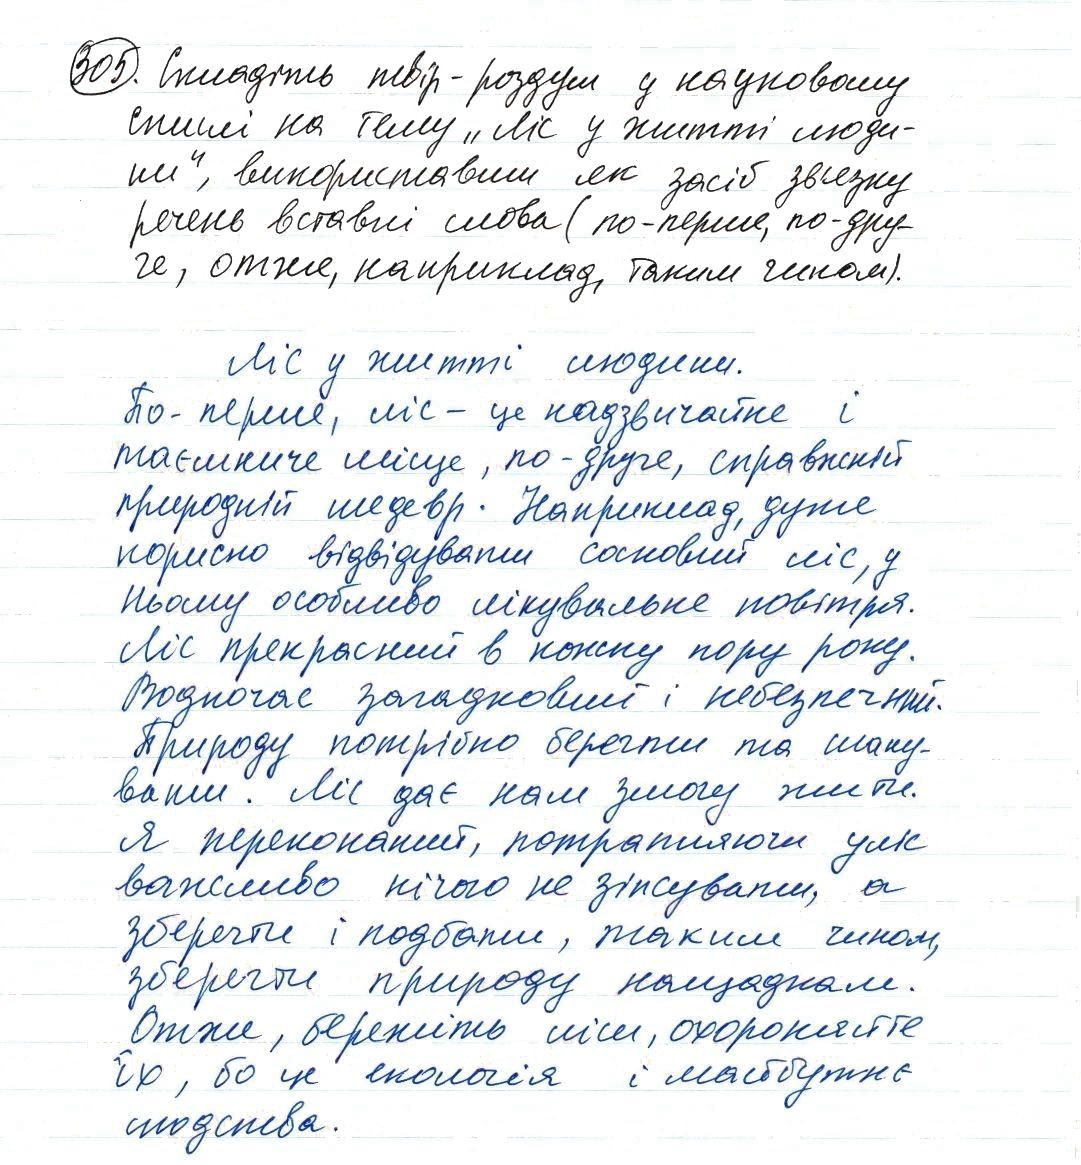 305. Складіть твір-роздум у науковому
стилі на тему „Ліс у житті люди-
ни", використавши як засіб звʼязку
речень вставні слова (по-перше, по-дру-
ге, отже, наприклад, таким чином).
Ліс у житті людини.
По-перше, ліс – це надзвичайне і
таємниче місце, по-друге, справжній
природній шедевр. Наприклад, дуже
корисно відвідувати сосновий ліс, у
ньому особливо лікувальне повітря.
Ліс прекрасний в кожну пору року.
Водночас загадковий і небезпечний.
Природу потрібно берегти та шану-
вати. Ліс дає нам змогу жити.
Я переконаний, потрапляючи у ліс
важливо нічого не зіпсувати, а
зберегти і подбати, таким чином,
зберегти природу нащадкам.
Отже, бережіть ліси, охороняйте
їх, бо це екологія і майбутнє
людства.